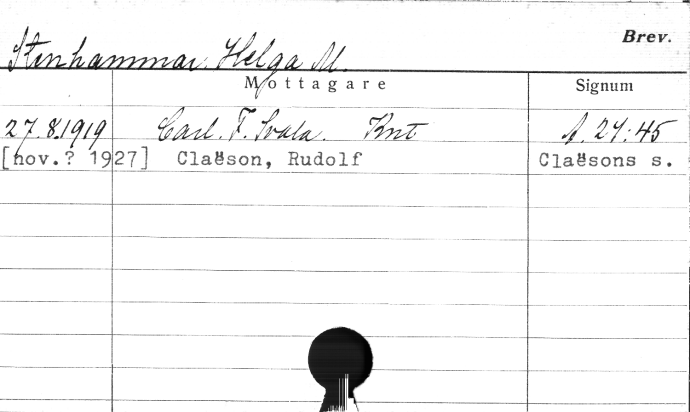 Brev.
Stenhammar. Helga M.
Mottagare Signum
27.8.1919 Carl. F. Svala. Knt A. 27:45
[nov.? 1927] Claëson, Rudolf Claësons s.